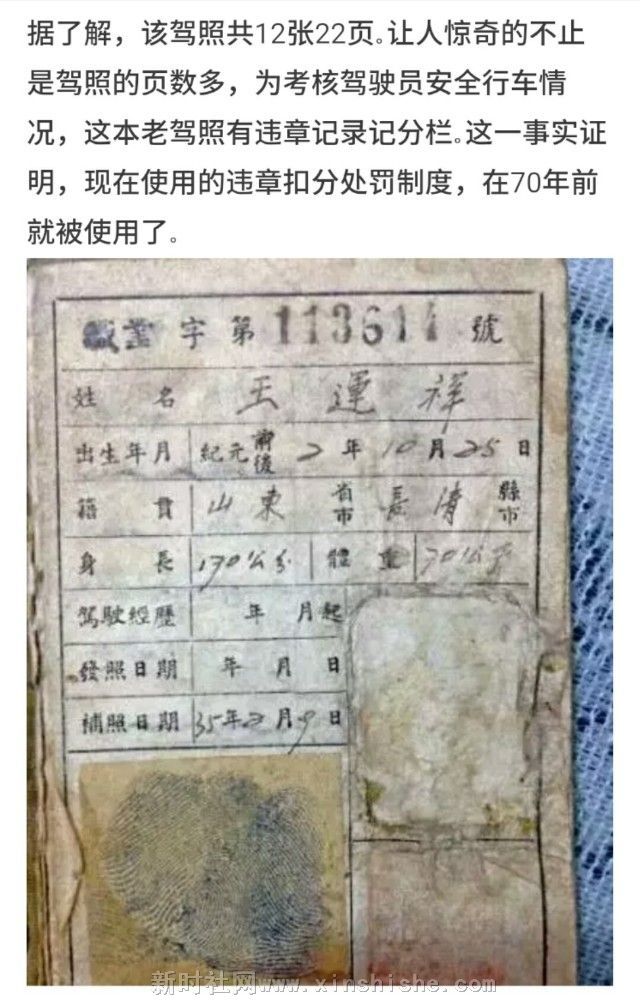 据了解，该驾照共12张22页。让人惊奇的不止
是驾照的页数多，为考核驾驶员安全行车情
况，这本老驾照有违章记录记分栏。这一事实证
明，现在使用的违章扣分处罚制度，在70年前
就被使用了。
字第113614號
姓名 王運祥
出生年月 紀元前後2年10月25日
籍貫 山東省市長清縣市
身長 170公分 體重 70公斤
駕駛經歷 年 月起
發照日期 年 月 日
補照日期 35年2月9日
新时社网www.xinshishe.com